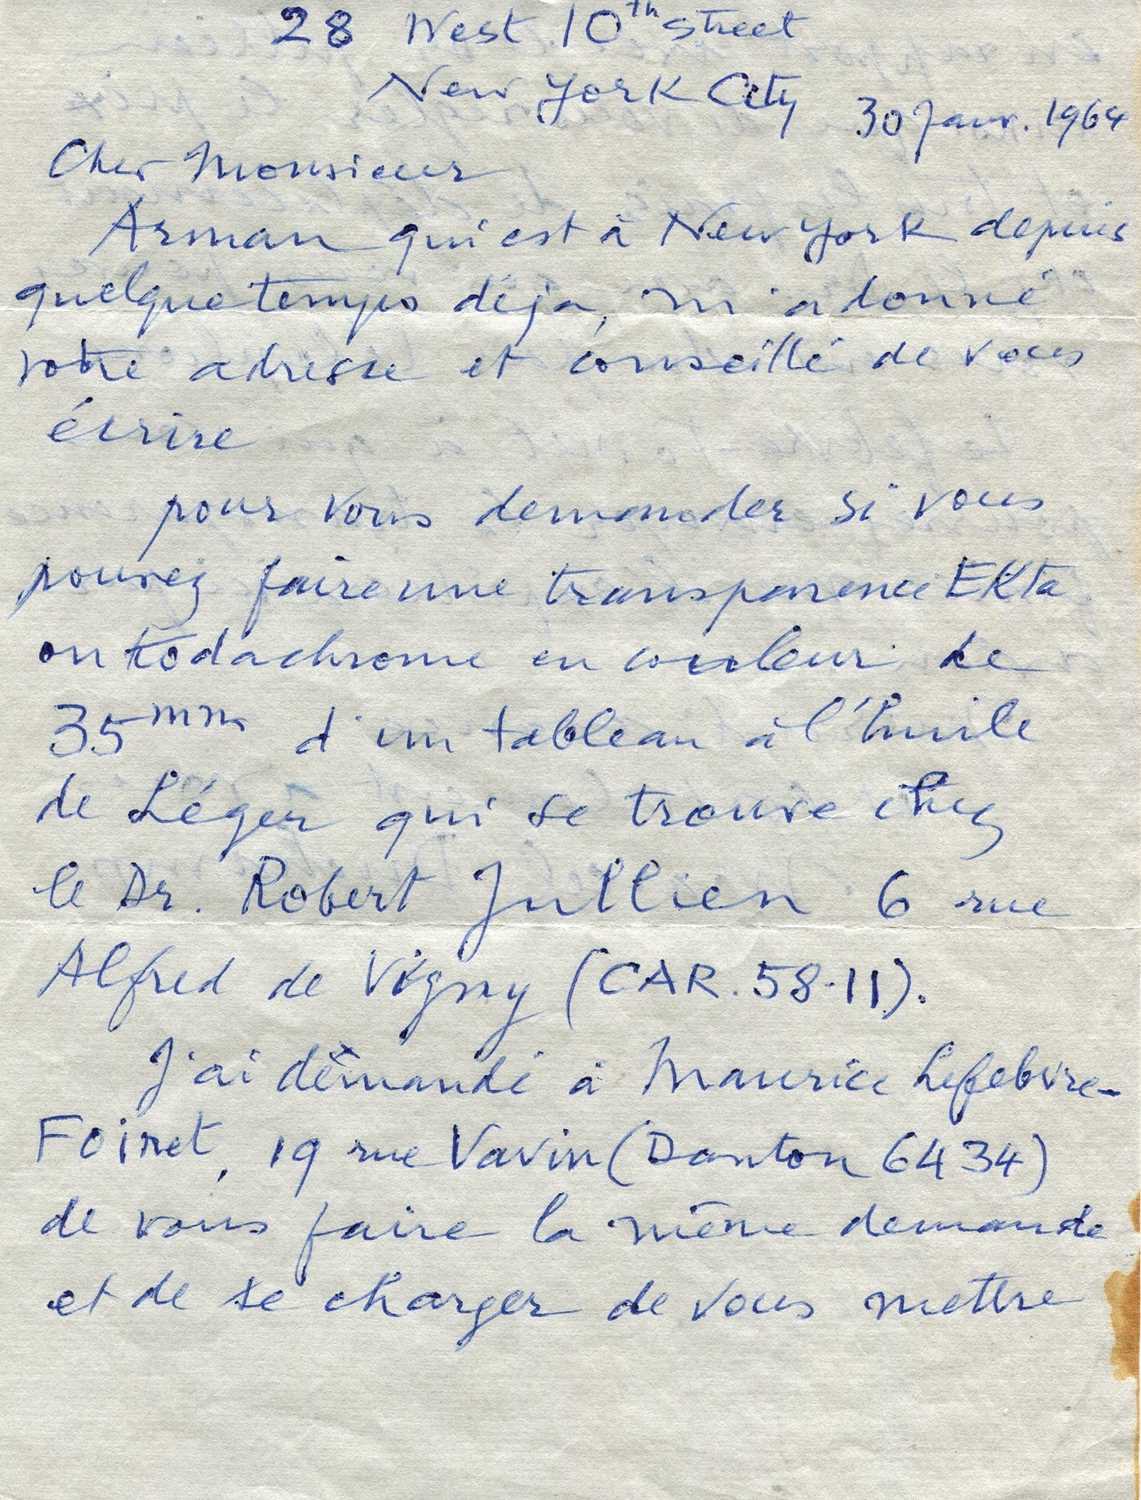 28 West 10th Street
New York City
30 Janv. 1964
Cher Monsieur
Arman qui est à New York depuis
quelque temps déja, m'a donné
votre adresse et conseillé de vous
écrire
pour vous demander si vous
pouvez faire une transparence EKTa
ou Kodachrome en couleur de
35mm d'un tableau à l'huile
de Léger qui se trouve chez
le Dr. Robert Jullien 6 rue
Alfred de Vigny (CAR. 58-11).
J'ai demandé à Maurice Lefebvre-
Foinet, 19 rue Vavin (Danton 64 34)
de vous faire la même demande
et de se charger de vous mettre